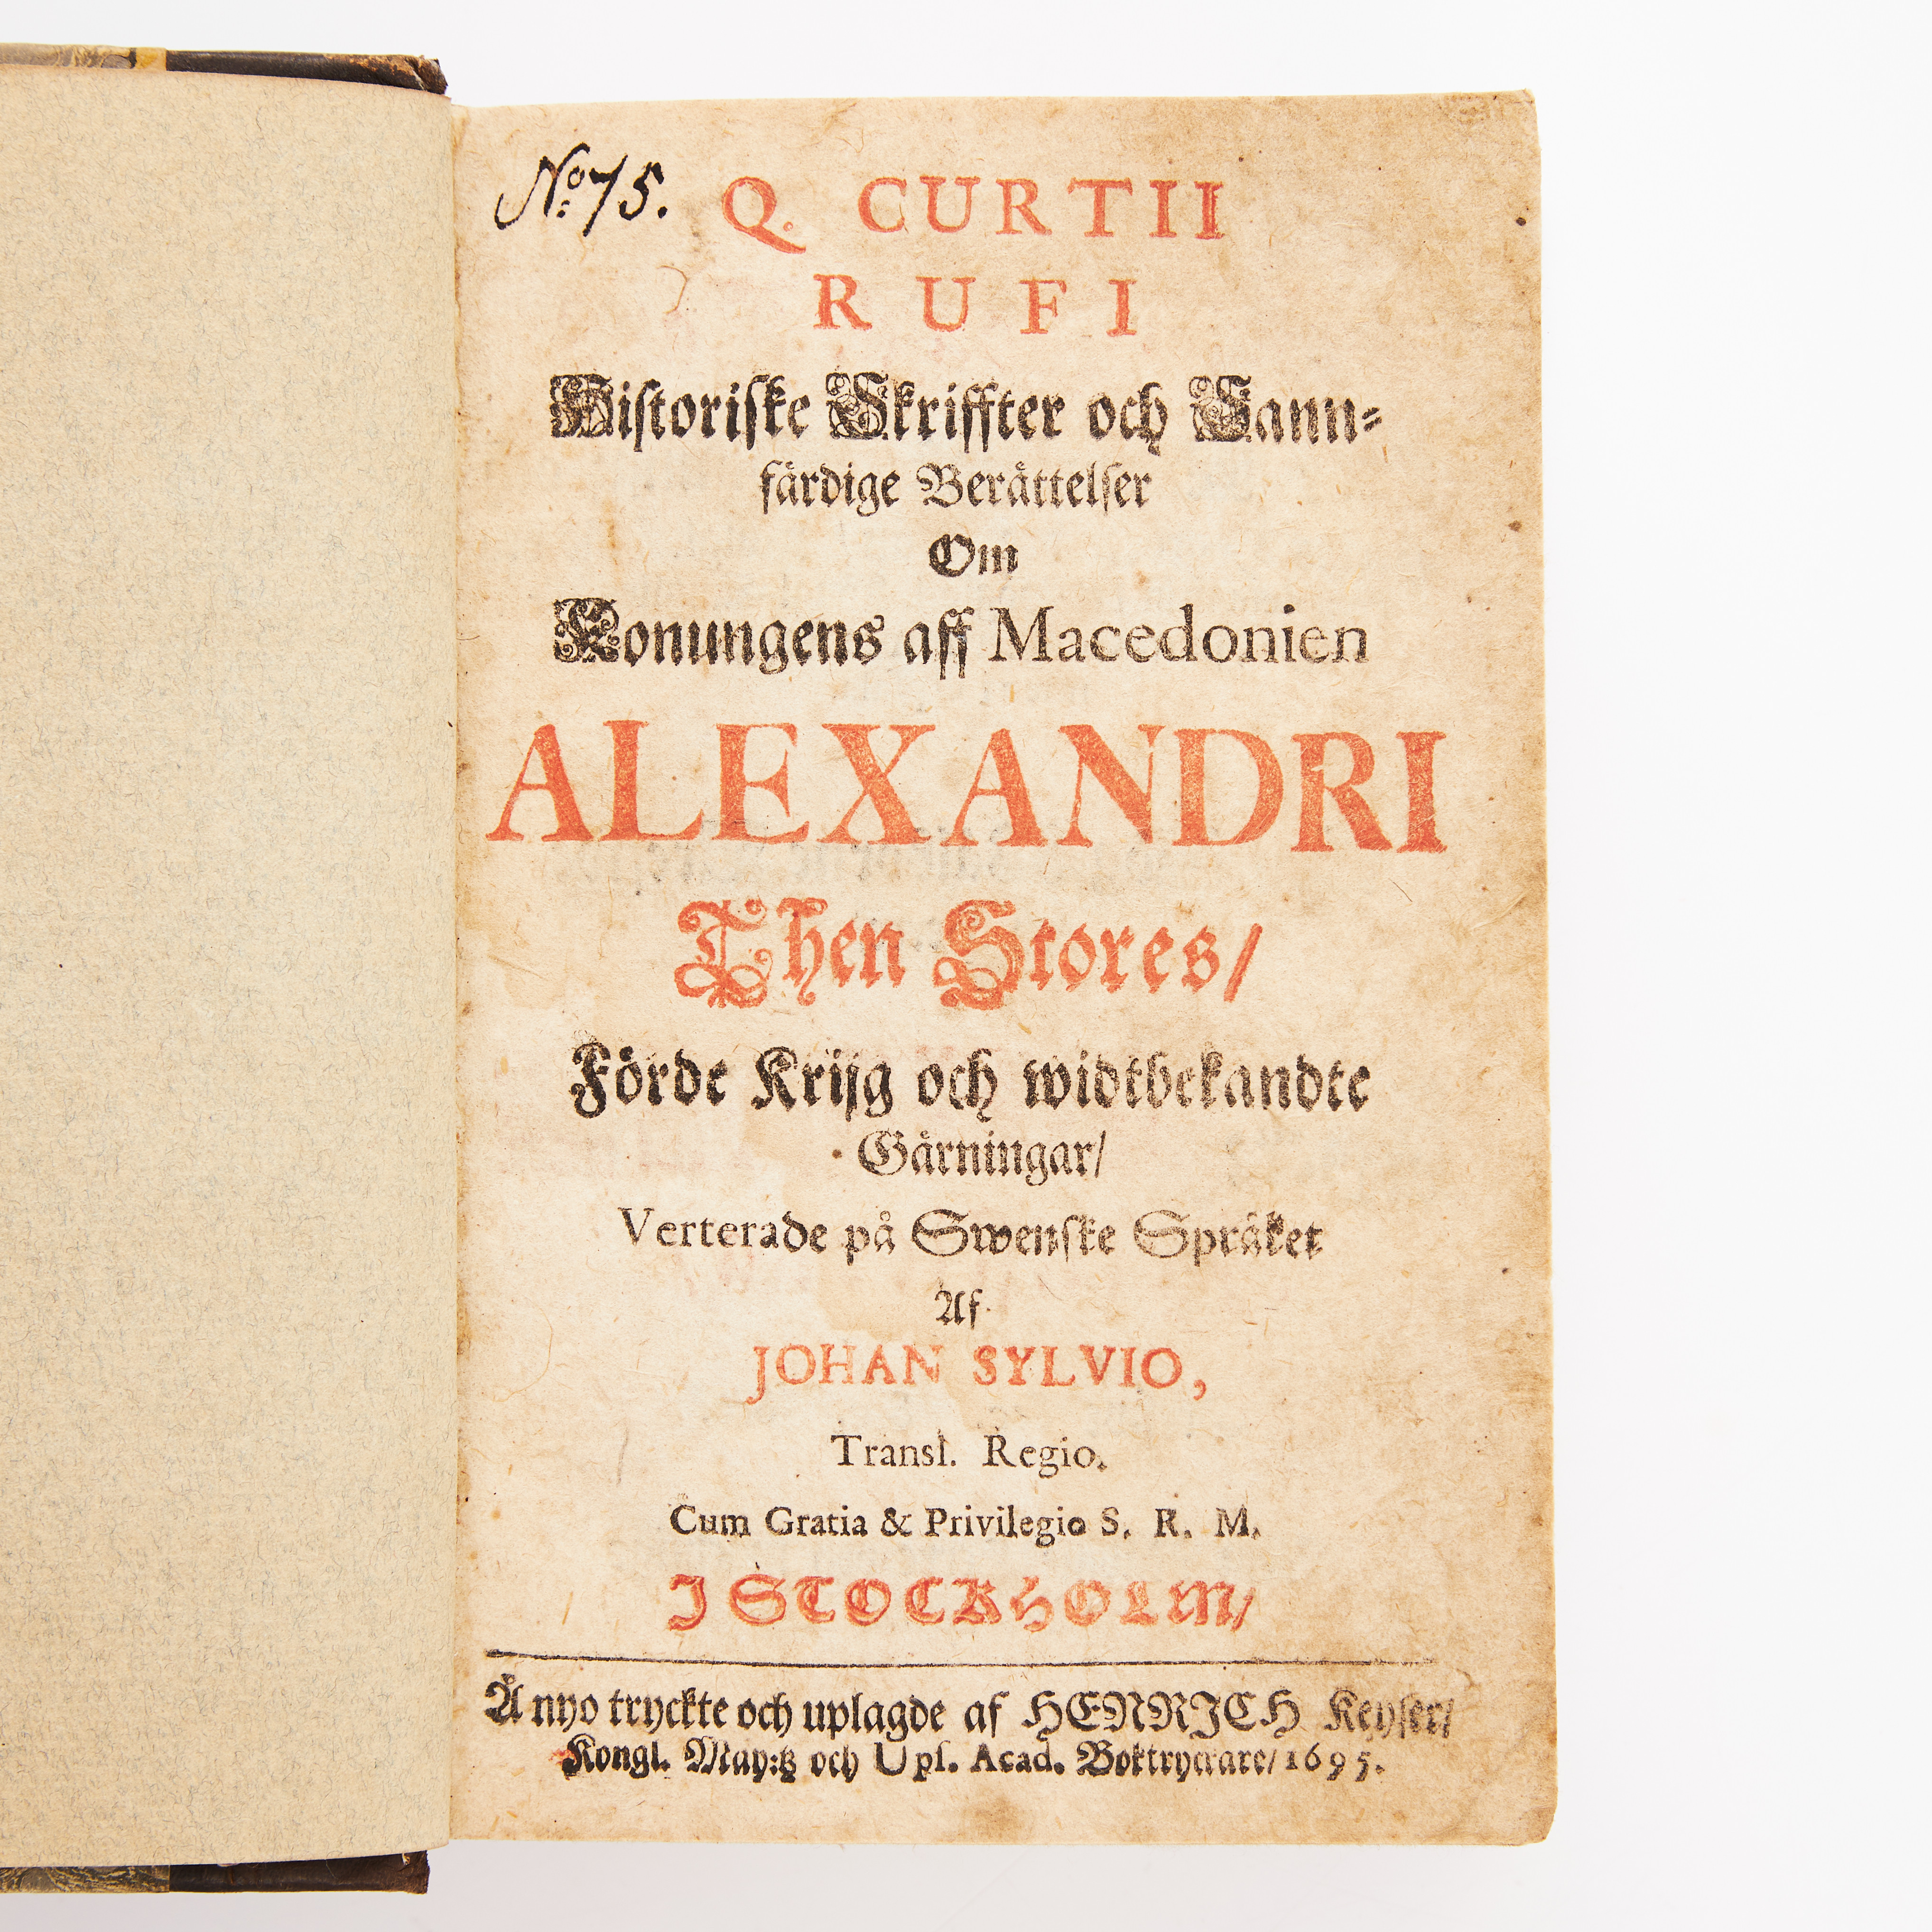 No: 75.
Q. CURTII
RUFI
Historiske Skriffter och Sann-
färdige Berättelser
Om
Konungens aff Macedonien
ALEXANDRI
Then Stores/
Förde Krijg och widtbekandte
Gärningar/
Verterade på Swenske Språket
Af
JOHAN SYLVIO,
Transl. Regio.
Cum Gratia & Privilegio S. R. M.
J STOCKHOLM/
Å nyo tryckte och uplagde af HENRICH Keyser/
Kongl. May:tz och Upl. Acad. Boktryckare/ 1695.